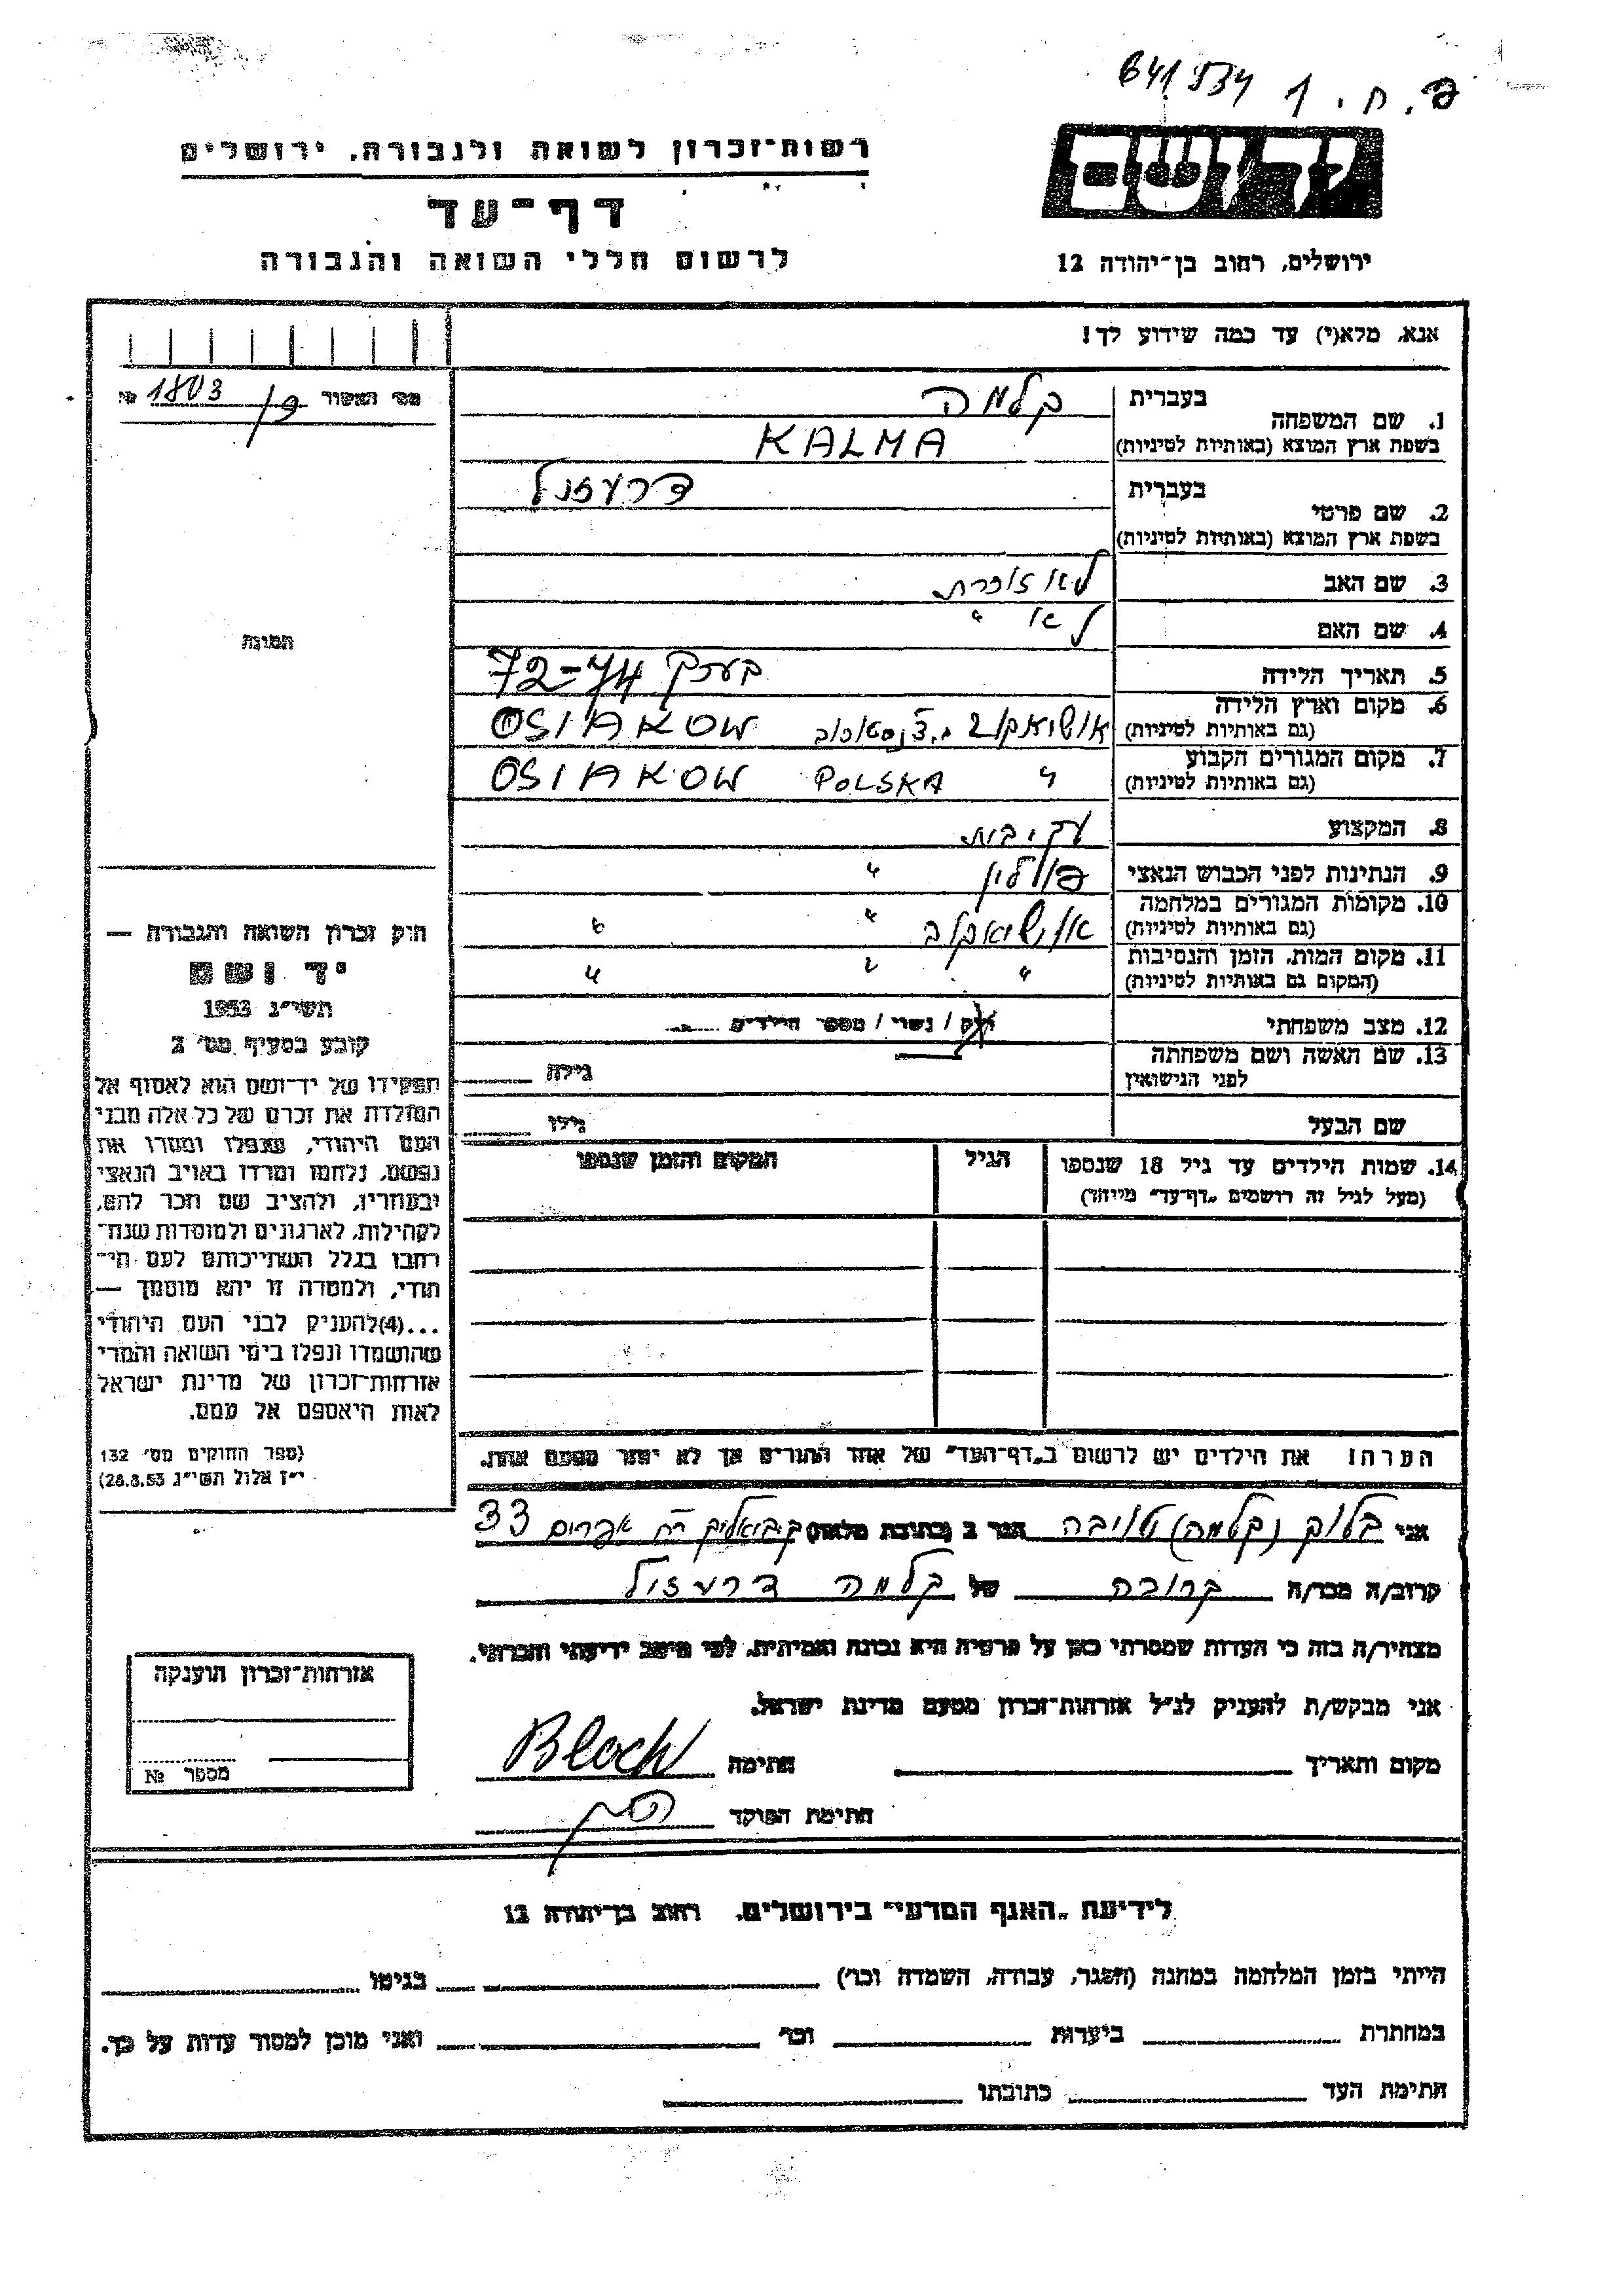 641534 1 פ.ח.
יד ושם
ירושלים, רחוב בן־יהודה 12
רשות־זכרון לשואה ולגבורה, ירושלים
דף־עד
לרשום חללי השואה והגבורה
אנא, מלא(י) עד כמה שידוע לך!
1. שם המשפחה
בעברית קלמה
בשפת ארץ המוצא (באותיות לטיניות) KALMA
2. שם פרטי
בעברית דרעזול
בשפת ארץ המוצא (באותיות לטיניות)
3. שם האב לא זוכרת
4. שם האם לא "
5. תאריך הלידה בערך 72-74
6. מקום וארץ הלידה אושיאקוב OSIAKOW
(גם באותיות לטיניות)
7. מקום המגורים הקבוע " POLSKA OSIAKOW
(גם באותיות לטיניות)
8. המקצוע עק. בית
9. הנתינות לפני הכבוש הנאצי פולין "
10. מקומות המגורים במלחמה אושיאקוב " "
(גם באותיות לטיניות)
11. מקום המות, הזמן והנסיבות " " "
(המקום גם באותיות לטיניות)
12. מצב משפחתי רוק / נשוי / מספר הילדים
13. שם האשה ושם משפחתה
לפני הנישואין
גילה
שם הבעל גילו
14. שמות הילדים עד גיל 18 שנספו הגיל המקום והזמן שנספו
(מעל לגיל זה רושמים "דף־עד" מיוחד)
הערה: את הילדים יש לרשום ב"דף־העד" של אחד ההורים אך לא יותר מפעם אחת.
מס' האסור № 1803
תמונה
חוק זכרון השואה והגבורה —
יד ושם
תשי"ג 1953
קובע בסעיף מס' 2
תפקידו של יד־ושם הוא לאסוף אל
המולדת את זכרם של כל אלה מבני
העם היהודי, שנפלו ומסרו את
נפשם, נלחמו ומרדו באויב הנאצי
ובעוזריו, ולהציב שם וזכר להם,
לקהילות, לארגונים ולמוסדות שנח־
רבו בגלל השתייכותם לעם הי־
הודי, ולמטרה זו יהא מוסמך —
...(4) להעניק לבני העם היהודי
שהושמדו ונפלו בימי השואה והמרי
אזרחות־זכרון של מדינת ישראל
לאות היאספם אל עמם.
(ספר החוקים מס' 132
י"ז אלול תשי"ג 28.8.53)
אני בלוך (קלמה) טויבה הגר ב (כתובת מלאה) ק. ביאליק רח אפרים 33
קרוב/ה מכר/ה קרובה של קלמה דרעזול
מצהיר/ה בזה כי העדות שמסרתי כאן על פרטיה היא נכונה ואמיתית, לפי מיטב ידיעתי והכרתי.
אני מבקש/ת להעניק לנ"ל אזרחות־זכרון מטעם מדינת ישראל.
מקום ותאריך חתימה Bloch
חתימת הפוקד
אזרחות־זכרון הוענקה
מספר №
לידיעת "האגף המדעי" בירושלים, רחוב בן־יהודה 12
הייתי בזמן המלחמה במחנה (הסגר, עבודה, השמדה וכו') בגיטו
במחתרת ביערות וכו' ואני מוכן למסור עדות על כך.
חתימת העד כתובתו